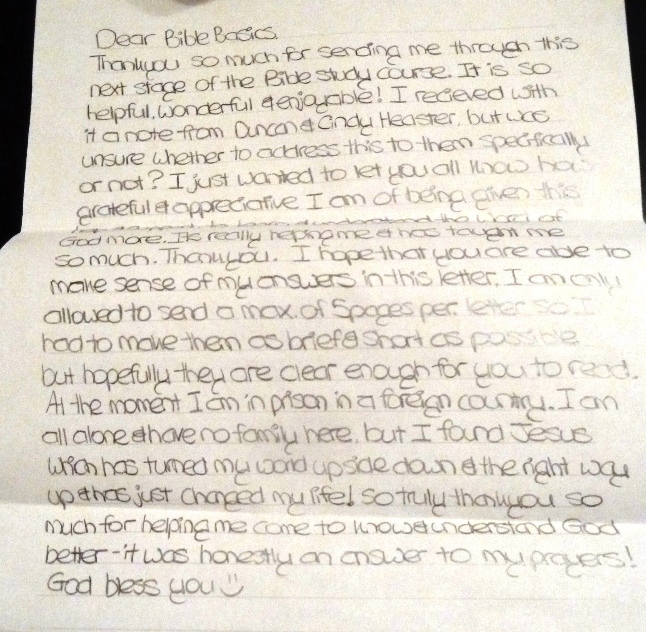 Dear Bible Basics.
Thankyou so much for sending me through this
next stage of the Bible study course. It is so
helpful, wonderful & enjoyable! I recieved with
it a note from Duncan & Cindy Heaster, but was
unsure whether to address this to them specifically
or not? I just wanted to let you all know how
grateful & appreciative I am of being given this
to learn & understand the word of
God more. Its really helping me & has taught me
so much. Thankyou. I hope that you are able to
make sense of my answers in this letter. I am only
allowed to send a max. of 5 pages per letter so I
had to make them as brief & short as possible
but hopefully they are clear enough for you to read.
At the moment I am in prison in a foreign country. I am
all alone & have no family here, but I found Jesus
which has turned my world upside down & the right way
up & has just changed my life! So truly thankyou so
much for helping me come to know & understand God
better - it was honestly an answer to my prayers!
God bless you